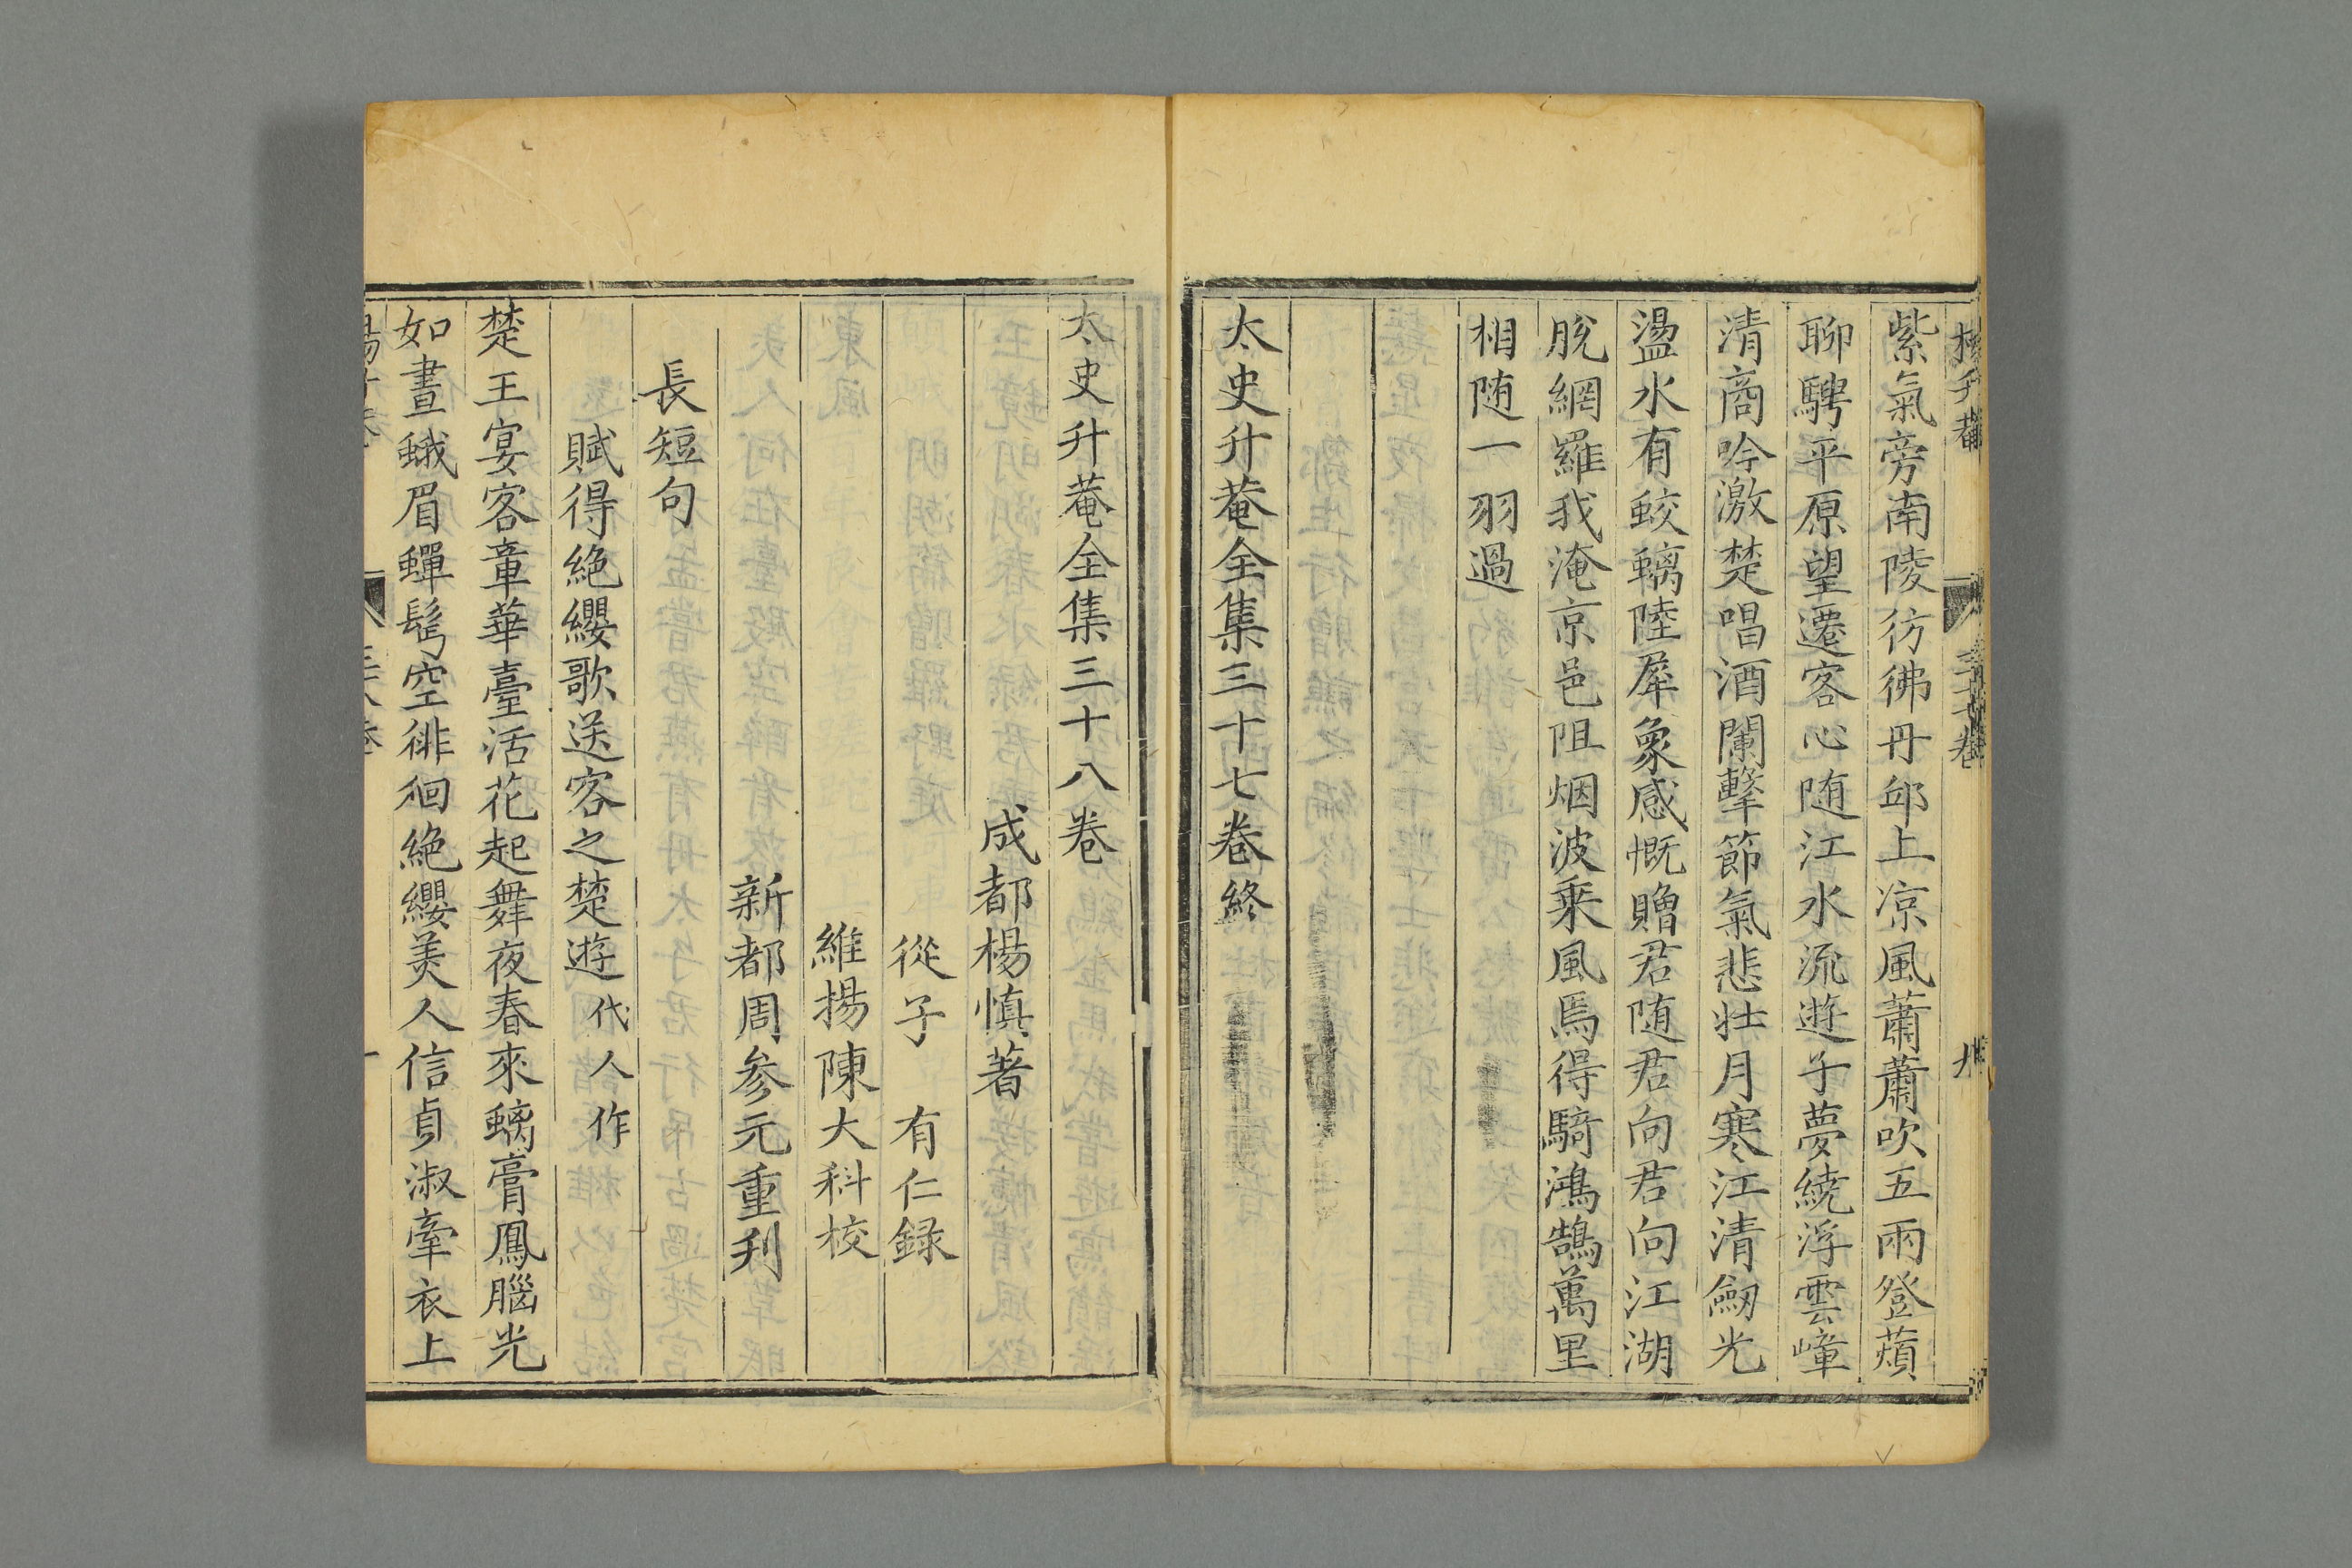 紫氣旁南陵彷彿丹邱上凉風蕭蕭吹五兩登蘋
聊騁平原望遷客心随江水流遊子夢繞浮雲嶂
清商吟激楚唱酒闌擊節氣悲壯月寒江清劒光
盪水有蛟螭陸犀象感慨贈君随君向君向江湖
脫網羅我淹京邑阻烟波乘風焉得騎鴻鵠萬里
相随一羽過
太史升菴全集三十七卷終
太史升菴全集三十八卷
成都楊慎著
從子 有仁録
維揚陳大科校
新都周參元重刋
長短句
賦得絶纓歌送客之楚遊代人作
楚王宴客章華臺活花起舞夜春來螭膏鳳腦光
如晝蛾眉蟬髩空徘徊絶纓美人信貞淑牽衣上